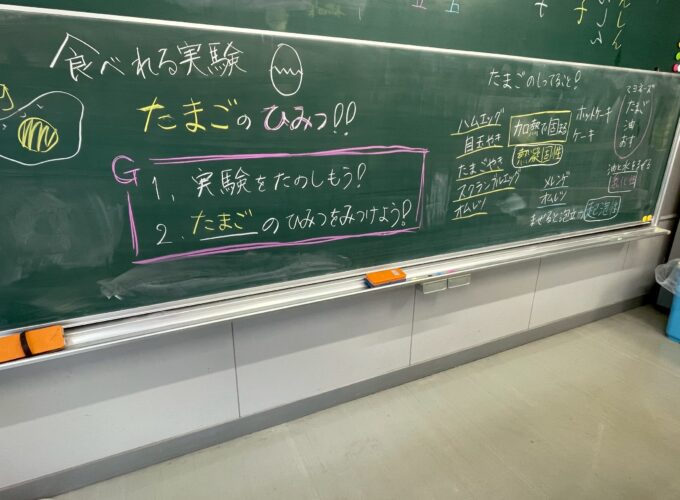 食べれる実験
たまごのひみつ!!
G
1、実験をたのしもう!
2、たまごのひみつをみつけよう!
たまごのしってること!
ハムエッグ
目玉やき
たまごやき
スクランブルエッグ
オムレツ
加熱で固まる
熱凝固性
ホットケーキ
ケーキ
メレンゲ
オムレツ
まぜると泡立つ
起泡性
マヨネーズ
たまご
油
おす
油と水をまぜる
乳化性